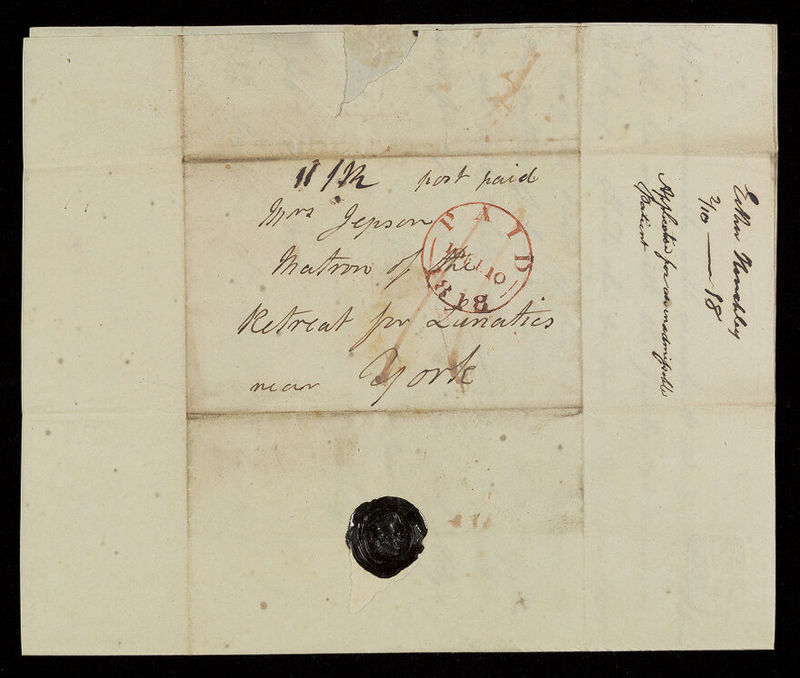 post paid
Mrs Jepson
Matron of the
Retreat for Lunatics
near York
PAID
10
1818
Esther
2/10 — 18
Application for an inadmissible
Patient